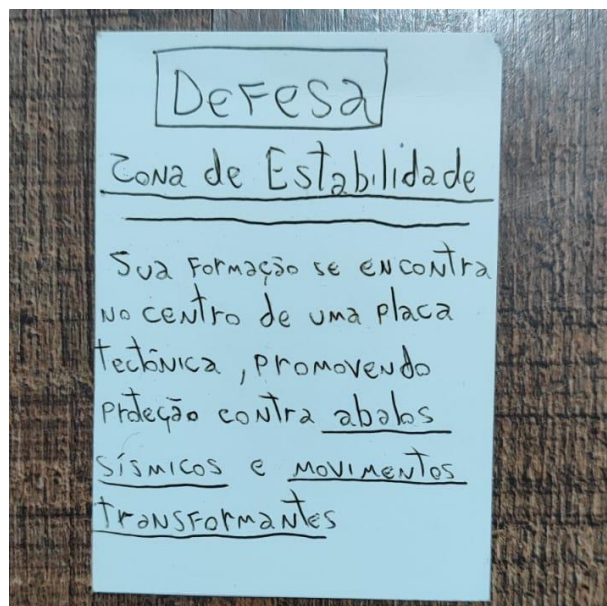 Defesa
Zona de Estabilidade
Sua Formação se encontra
no centro de uma placa
tectônica, promovendo
proteção contra abalos
sísmicos e movimentos
transformantes